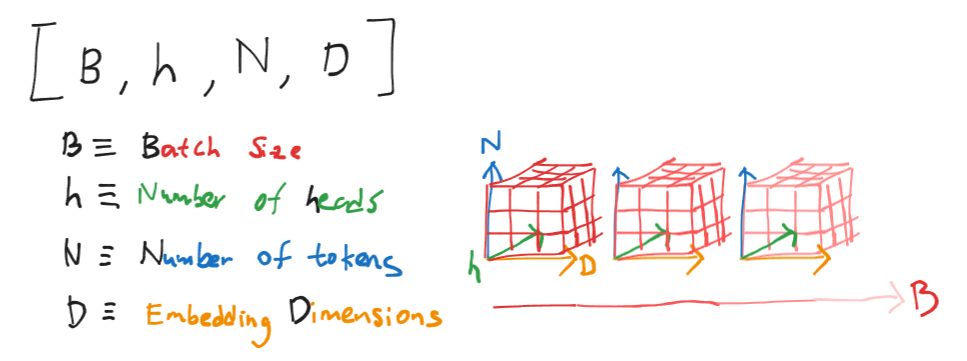 [ B, h, N, D ]
B ≡ Batch Size
h ≡ Number of heads
N ≡ Number of tokens
D ≡ Embedding Dimensions
N
h
D
B